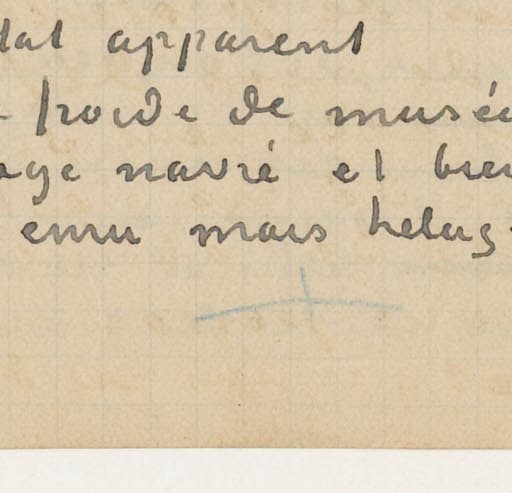 tat apparent
froide de musée
age navré et bien
emu mais helas